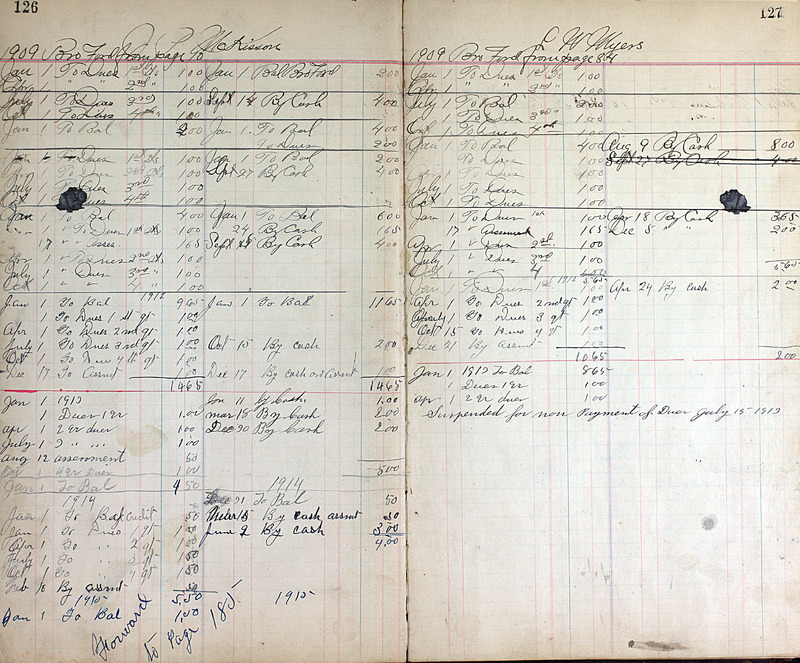 126
McKisson
1909 Bro Ford from page 70
Jan 1 To Dues 1st Qr 100 Jan 1 Bal Bro Ford 200
Apr 1 " " 2nd " 100
July 1 To Dues 3rd " 100 Sept 14 By Cash 400
Oct 1 To Dues 4th " 100
Jan 1 To Bal 200 Jan 1. To Bal 400
To Dues 200
Jan 1 To Dues 1st Qr 100 Jan 1 To Bal 200
Apr 1 To Dues 2nd Qr 100 Sept 27 By Cash 400
July 1 To Dues 3rd 100
Oct 1 To Dues 4th 100
Jan 1 To Bal 400 Jan 1 To Bal 600
" 1 " To Dues 1st Qr 100 24 By Cash 165
17 " Asses. 165 Sept By Cash 400
Apr 1 " Dues 2nd Qr 100
July 1 " Dues 3rd " 100
Oct 1 " " 4 " 100
1912
Jan 1 To Bal 965 Jan 1 To Bal 1165
1 To Dues 1st qt 100
Apr 1 To Dues 2nd qt 100
July 1 To Dues 3rd qt 100 Oct 15 By cash 200
Oct 1 To Dues 4th qt 100
Dec 17 To Assmt 100 Dec 17 By cash on Assmt 100
1465 1465
Jan 1 1913 Jan 11 by Cash. 1.00
1 Dues 1 qr 1.00 Mar 18 By Cash 200
apr 1 2 qr dues 100 Dec 30 By Cash 200
July 1 3 " " 100
aug 12 assessment 50
Oct 1 4 qr Dues 100 500
Jan 1 To Bal 450 1914
1914 Dec 31 To Bal 50
Jan 1 To Bal credit 50 Mar 15 By cash assmt 50
Jan 1 To Dues 1 qt 100 June 2 By cash 300
Apr 1 To " 2 qt 100 400
July 1 To " 3 qt 100
Oct 1 To " 4 qt 100
Feb 16 By assmt 50
1915 550 1915
Jan 1 To Bal 150
Forward to Page 185
127
L W Myers
1909 Bro Ford from page 84
Jan 1 To Dues 1st Qr 100
Apr 1 " " 2nd " 100
July 1 To Bal 200
To Dues 3rd " 100
Oct 1 To Dues 4th 100
Jan 1 To Bal 400 Aug 9 By Cash 800
Apr 1 To Dues 100 Sept 27 By Cash 400
July 1 To Dues 100
Oct 1 To Dues 100
Jan 1 To Dues 1st 100 Apr 18 By Cash 365
17 " Assesment 165 Dec 8 " " 200
Apr 1 " Dues 2nd. 100
July 1 " Dues 3rd 100
Oct 1 " " 4 100 565
1912 565
Jan 1 To Dues 1st 100 Apr 24 By cash 200
Apr 1 To Dues 2nd qt 100
July 1 To Dues 3 qt 100
Oct 15 To Dues 4 qt 100
Dec 21 By Assmt 100
1065 200
Jan 1 1913 To Bal 865
1 Dues 1 qr 100
apr 1 2 qr dues 100
Suspended for non Payment of Dues July 15 1913